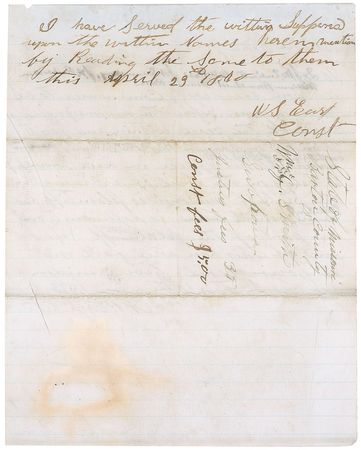 I have Served the within Suppena
upon the within Names herein mention
by Reading the Same to them
this April 29th 1868
W S Earp
Const
State of Missouri
Barton County
vs
Supoena
Justus fees 35
Const fees $5.00